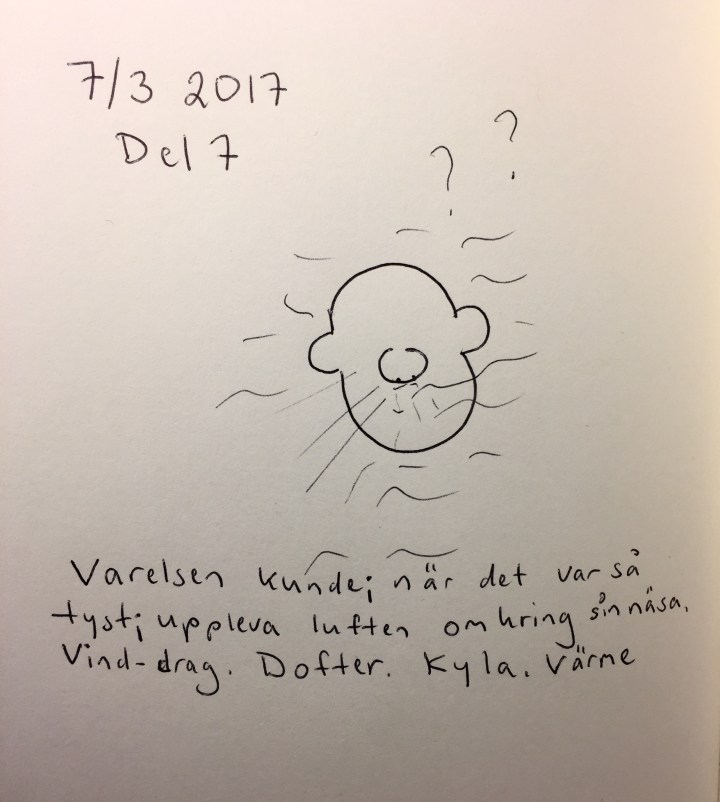 7/3 2017
Del 7
? ?
Varelsen kunde; när det var så
tyst; uppleva luften omkring sin näsa.
Vind-drag. Dofter. Kyla. Värme